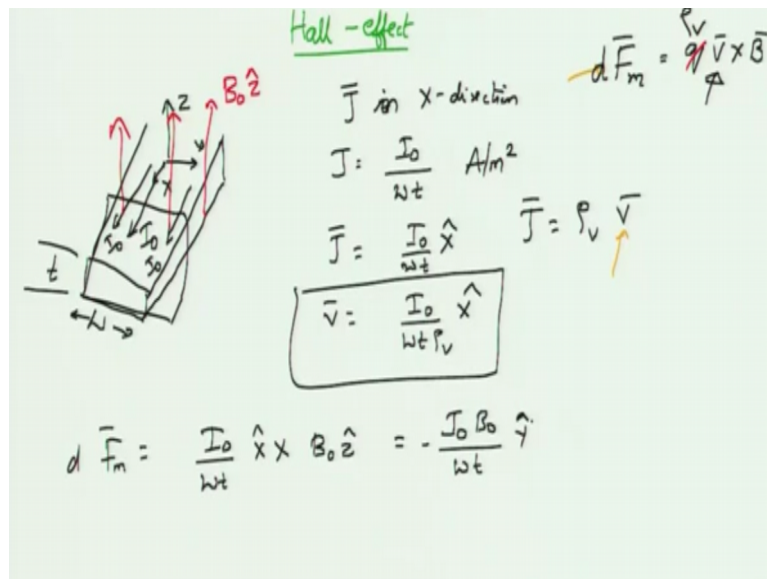 Hall - effect
ρv
dF̄m = q v̄ × B̄
B₀ẑ
z
y
x
I₀ I₀
I₀
t
W
J̄ in x-direction
J = I₀/wt A/m²
J̄ = I₀/wt x̂
J̄ = ρv v̄
v̄ = I₀/wtρv x̂
d F̄m = I₀/wt x̂ × B₀ẑ = - I₀B₀/wt ŷ